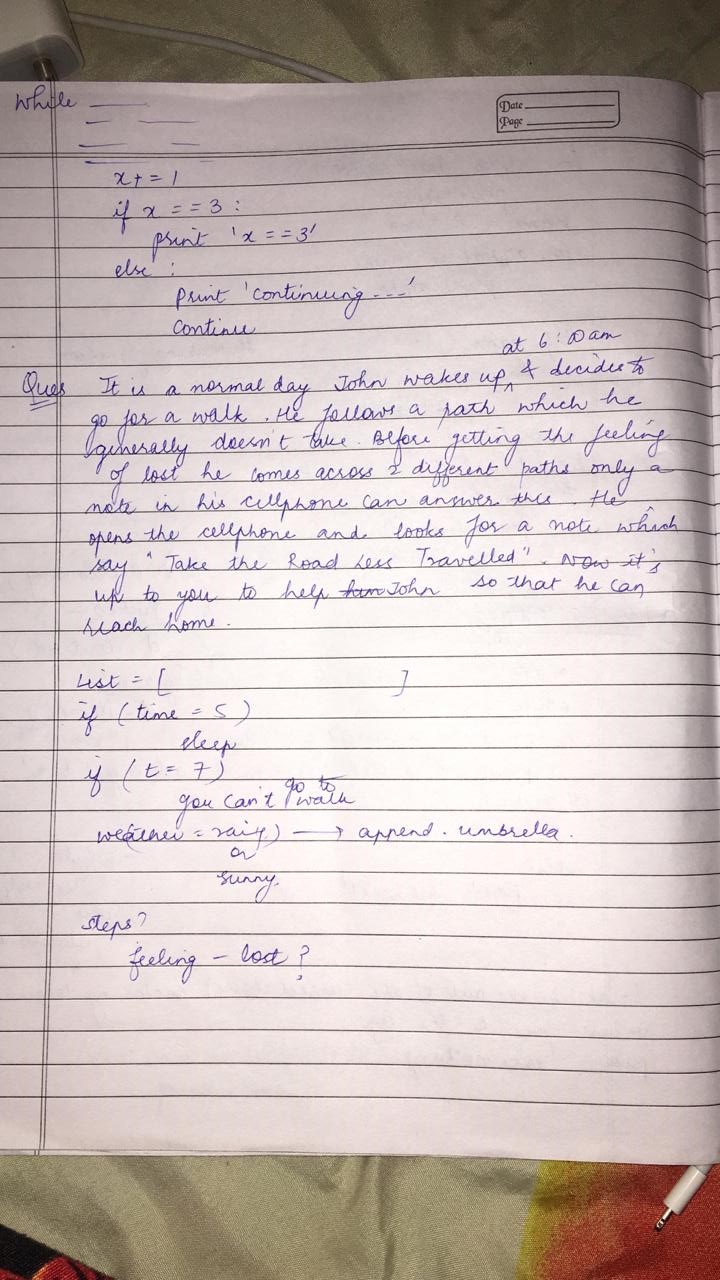 While
Date
Page
x+=1
if x ==3 :
print 'x ==3'
else :
Print 'continuing ---'
Continue
at 6:00 am
Ques It is a normal day John wakes up ^ & decides to
go for a walk. He follows a path which he
generally doesn't take. Before getting the feeling
of lost he comes across 2 different paths only a
note in his cellphone can answer this. He
opens the cellphone and looks for a note which
say "Take the Road Less Travelled". Now it's
up to you to help him John so that he can
reach home.
List = [ ]
if (time = 5)
sleep
if (t = 7)
go to
you can't walk
weather = rainy) → append. umbrella.
or
sunny.
steps?
feeling - lost?